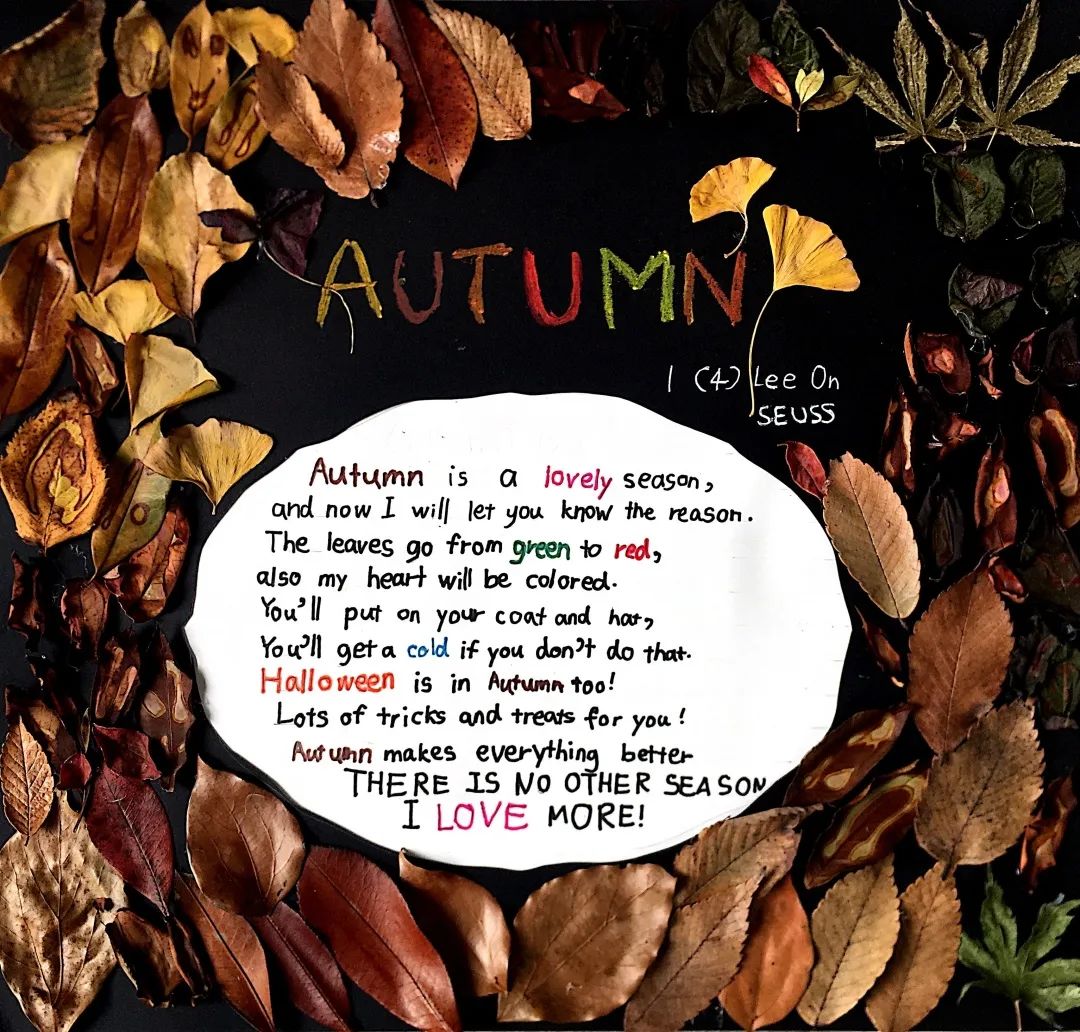 AUTUMN
1 (4) Lee On
SEUSS
Autumn is a lovely season,
and now I will let you know the reason.
The leaves go from green to red,
also my heart will be colored.
You'll put on your coat and hat,
You'll get a cold if you don't do that.
Halloween is in Autumn too!
Lots of tricks and treats for you!
Autumn makes everything better
THERE IS NO OTHER SEASON
I LOVE MORE!